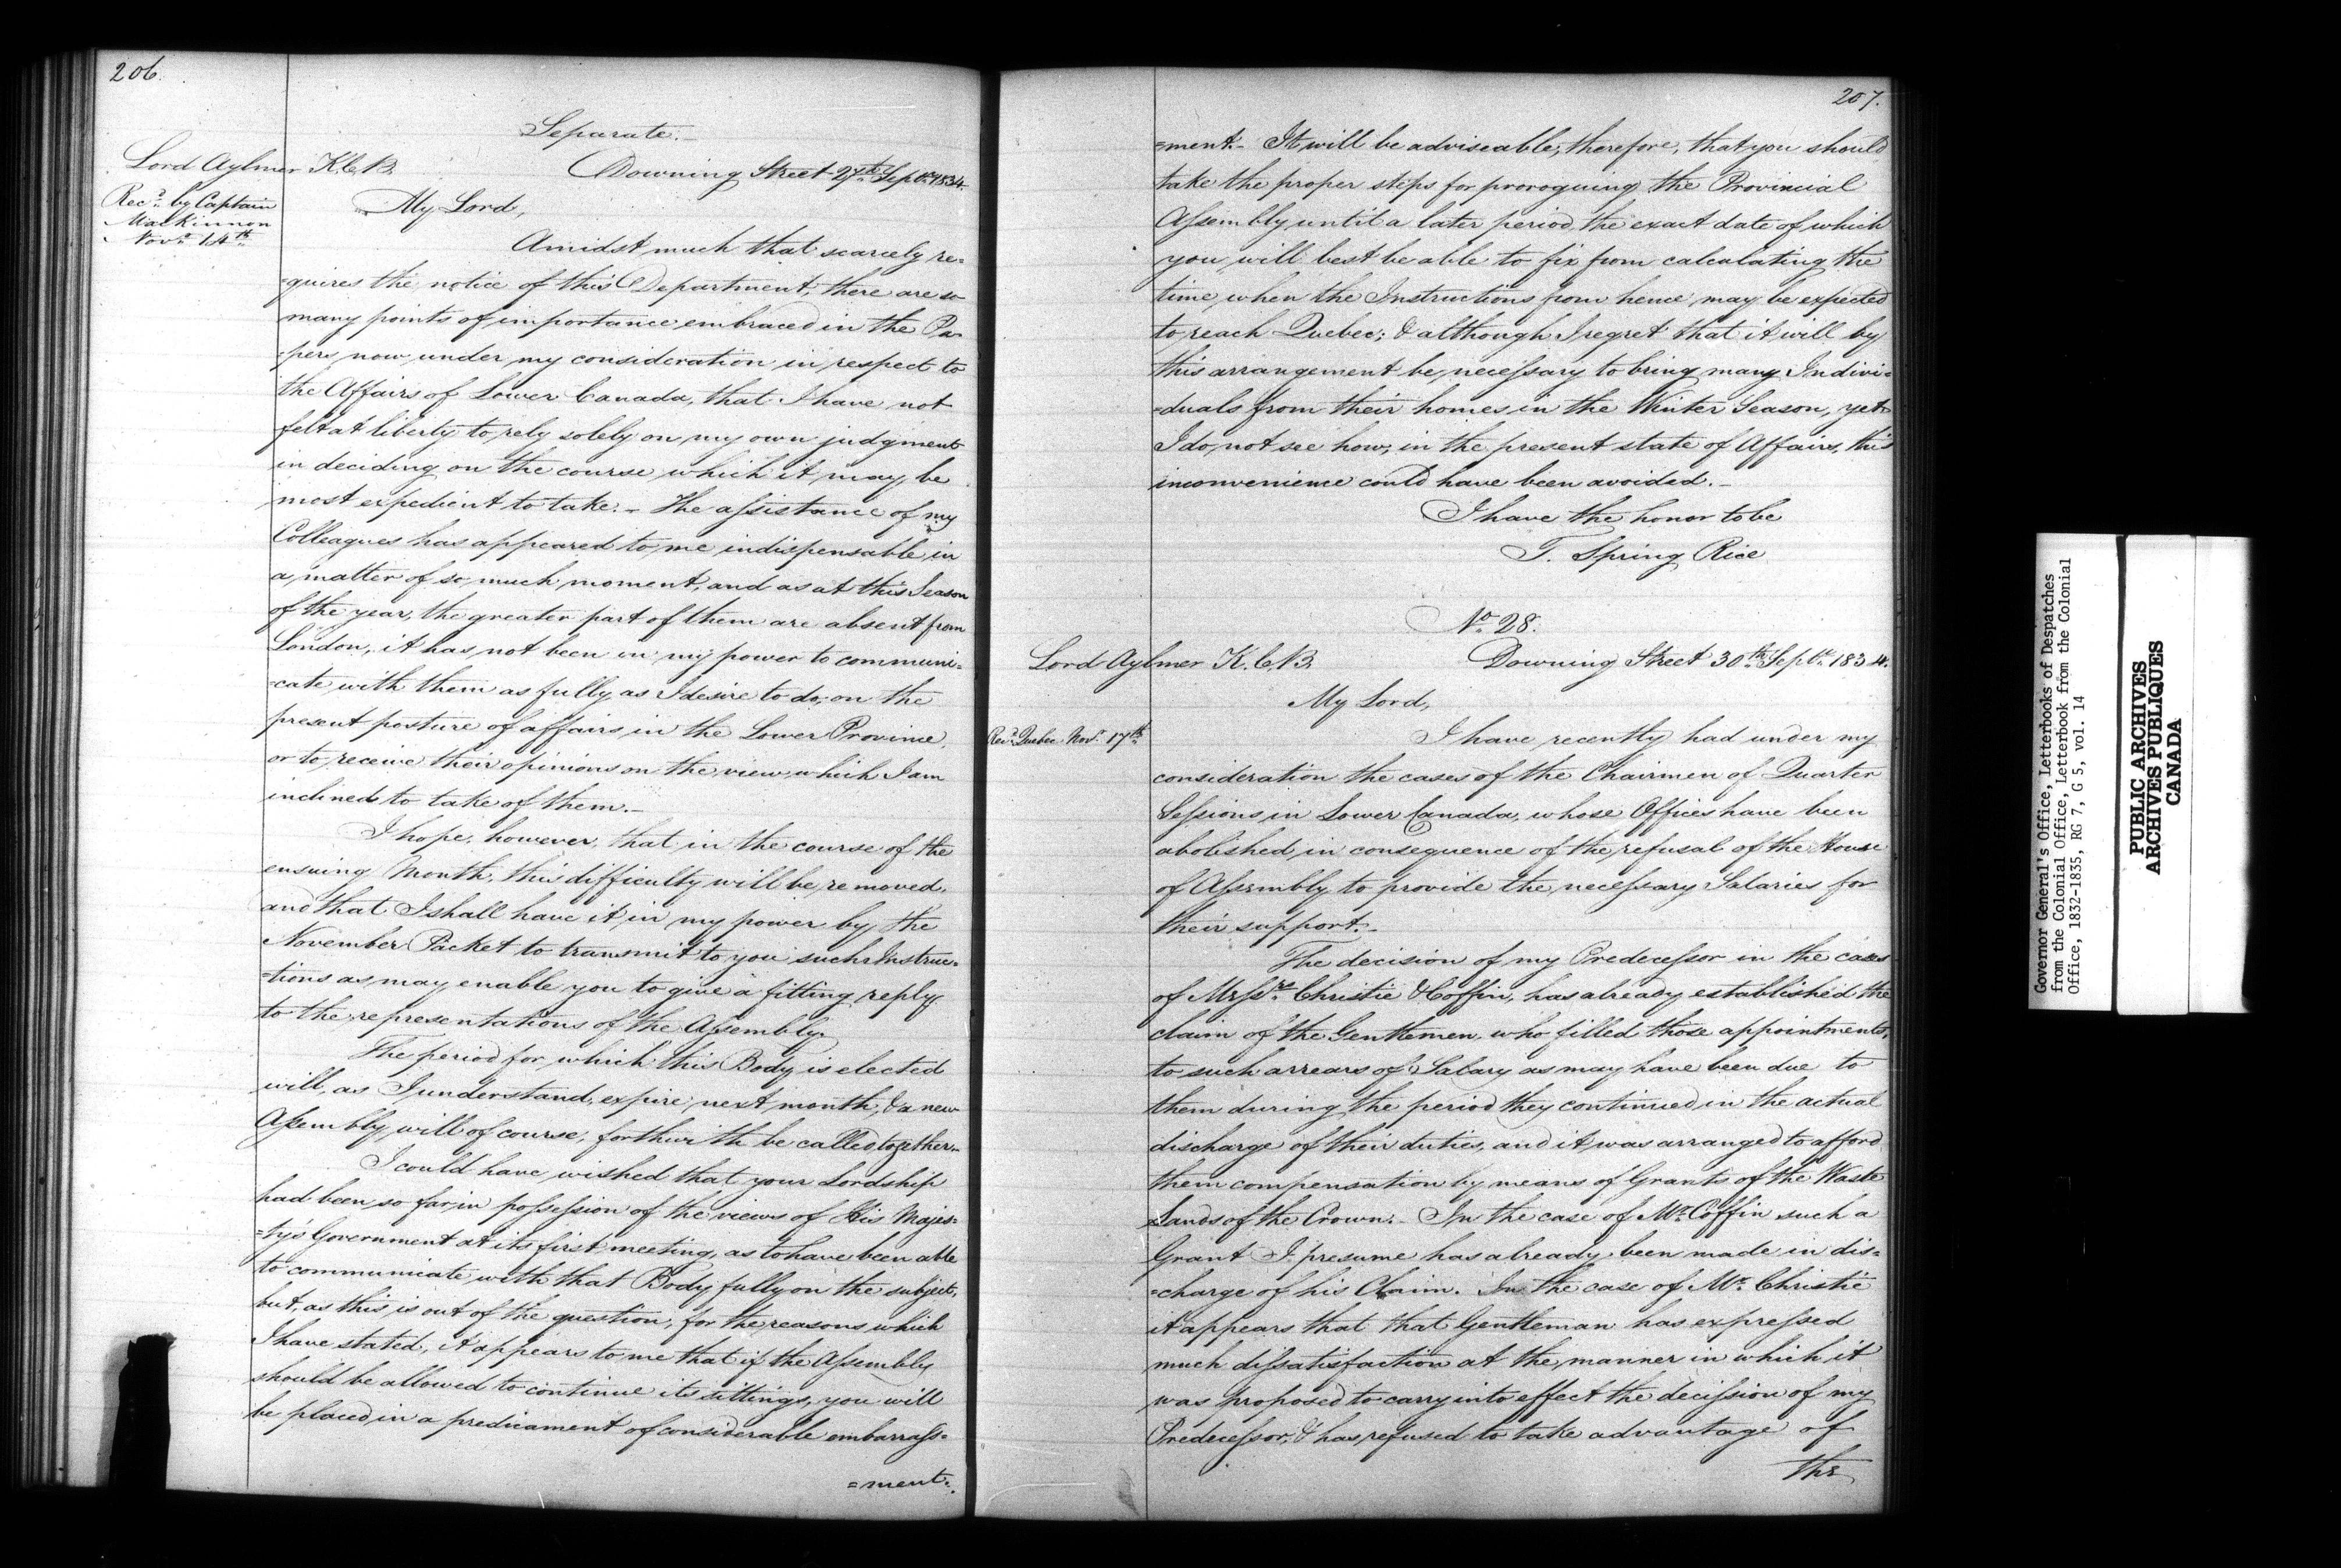 206.
Separate.
Lord Aylmer K.C.B.
Downing Street 27th Sepr. 1834.
Recd. by Captain
MacKinnon
Novr. 14th
My Lord,
Amidst much that scarcely re=
=quires the notice of this Department, there are so
many points of importance embraced in the Pa=
=pers now under my consideration in respect to
the Affairs of Lower Canada, that I have not
felt at liberty to rely solely on my own judgment
in deciding on the course which it may be
most expedient to take. – The assistance of my
Colleagues has appeared to me indispensable in
a matter of so much moment, and as at this Season
of the year, the greater part of them are absent from
London, it has not been in my power to communi=
=cate with them as fully as I desire to do, on the
present posture of affairs in the Lower Province,
or to receive their opinions on the view which I am
inclined to take of them. –
I hope, however, that in the course of the
ensuing Month, this difficulty will be removed,
and that I shall have it in my power by the
November Packet to transmit to you such Instruc=
=tions as may enable you to give a fitting reply
to the representations of the Assembly.
The period for which this Body is elected
will, as I understand, expire next month, & a new
Assembly will of course, forthwith be called together.
I could have wished that your Lordship
had been so far in possession of the views of His Majes=
=ty's Government at its first meeting, as to have been able
to communicate with that Body fully on the subject,
but, as this is out of the question, for the reasons which
I have stated, it appears to me that if the Assembly
should be allowed to continue its sittings, you will
be placed in a predicament of considerable embarrass=
=ment.
207.
=ment. – It will be adviseable, therefore, that you should
take the proper steps for proroguing the Provincial
Assembly until a later period, the exact date of which
you will best be able to fix from calculating the
time, when the Instructions from hence may be expected
to reach Quebec; & although I regret that it will by
this arrangement be necessary to bring many Indivi=
=duals from their homes in the Winter Season, yet
I do not see how, in the present state of Affairs, this
inconvenience could have been avoided. –
I have the honor to be
T. Spring Rice
No. 28.
Lord Aylmer K.C.B.
Downing Street 30th Sepr. 1834.
My Lord,
Recd. Quebec Novr. 17th
I have recently had under my
consideration the cases of the Chairmen of Quarter
Sessions in Lower Canada, whose Offices have been
abolished in consequence of the refusal of the House
of Assembly to provide the necessary Salaries for
their support. –
The decision of my Predecessor in the cases
of Messrs. Christie & Coffin, has already established the
claim of the Gentlemen who filled those appointments,
to such arrears of Salary as may have been due to
them during the period they continued in the actual
discharge of their duties, and it was arranged to afford
them compensation by means of Grants of the Waste
Lands of the Crown. – In the case of Mr. Coffin such a
Grant I presume has already been made in dis=
=charge of his Claim. In the case of Mr. Christie
it appears that that Gentleman has expressed
much dissatisfaction at the manner in which it
was proposed to carry into effect the decission of my
Predecessor, & has refused to take advantage of
the
Governor General's Office, Letterbooks of Despatches
from the Colonial Office, Letterbook from the Colonial
Office, 1832-1835, RG 7, G 5, vol. 14
PUBLIC ARCHIVES
ARCHIVES PUBLIQUES
CANADA